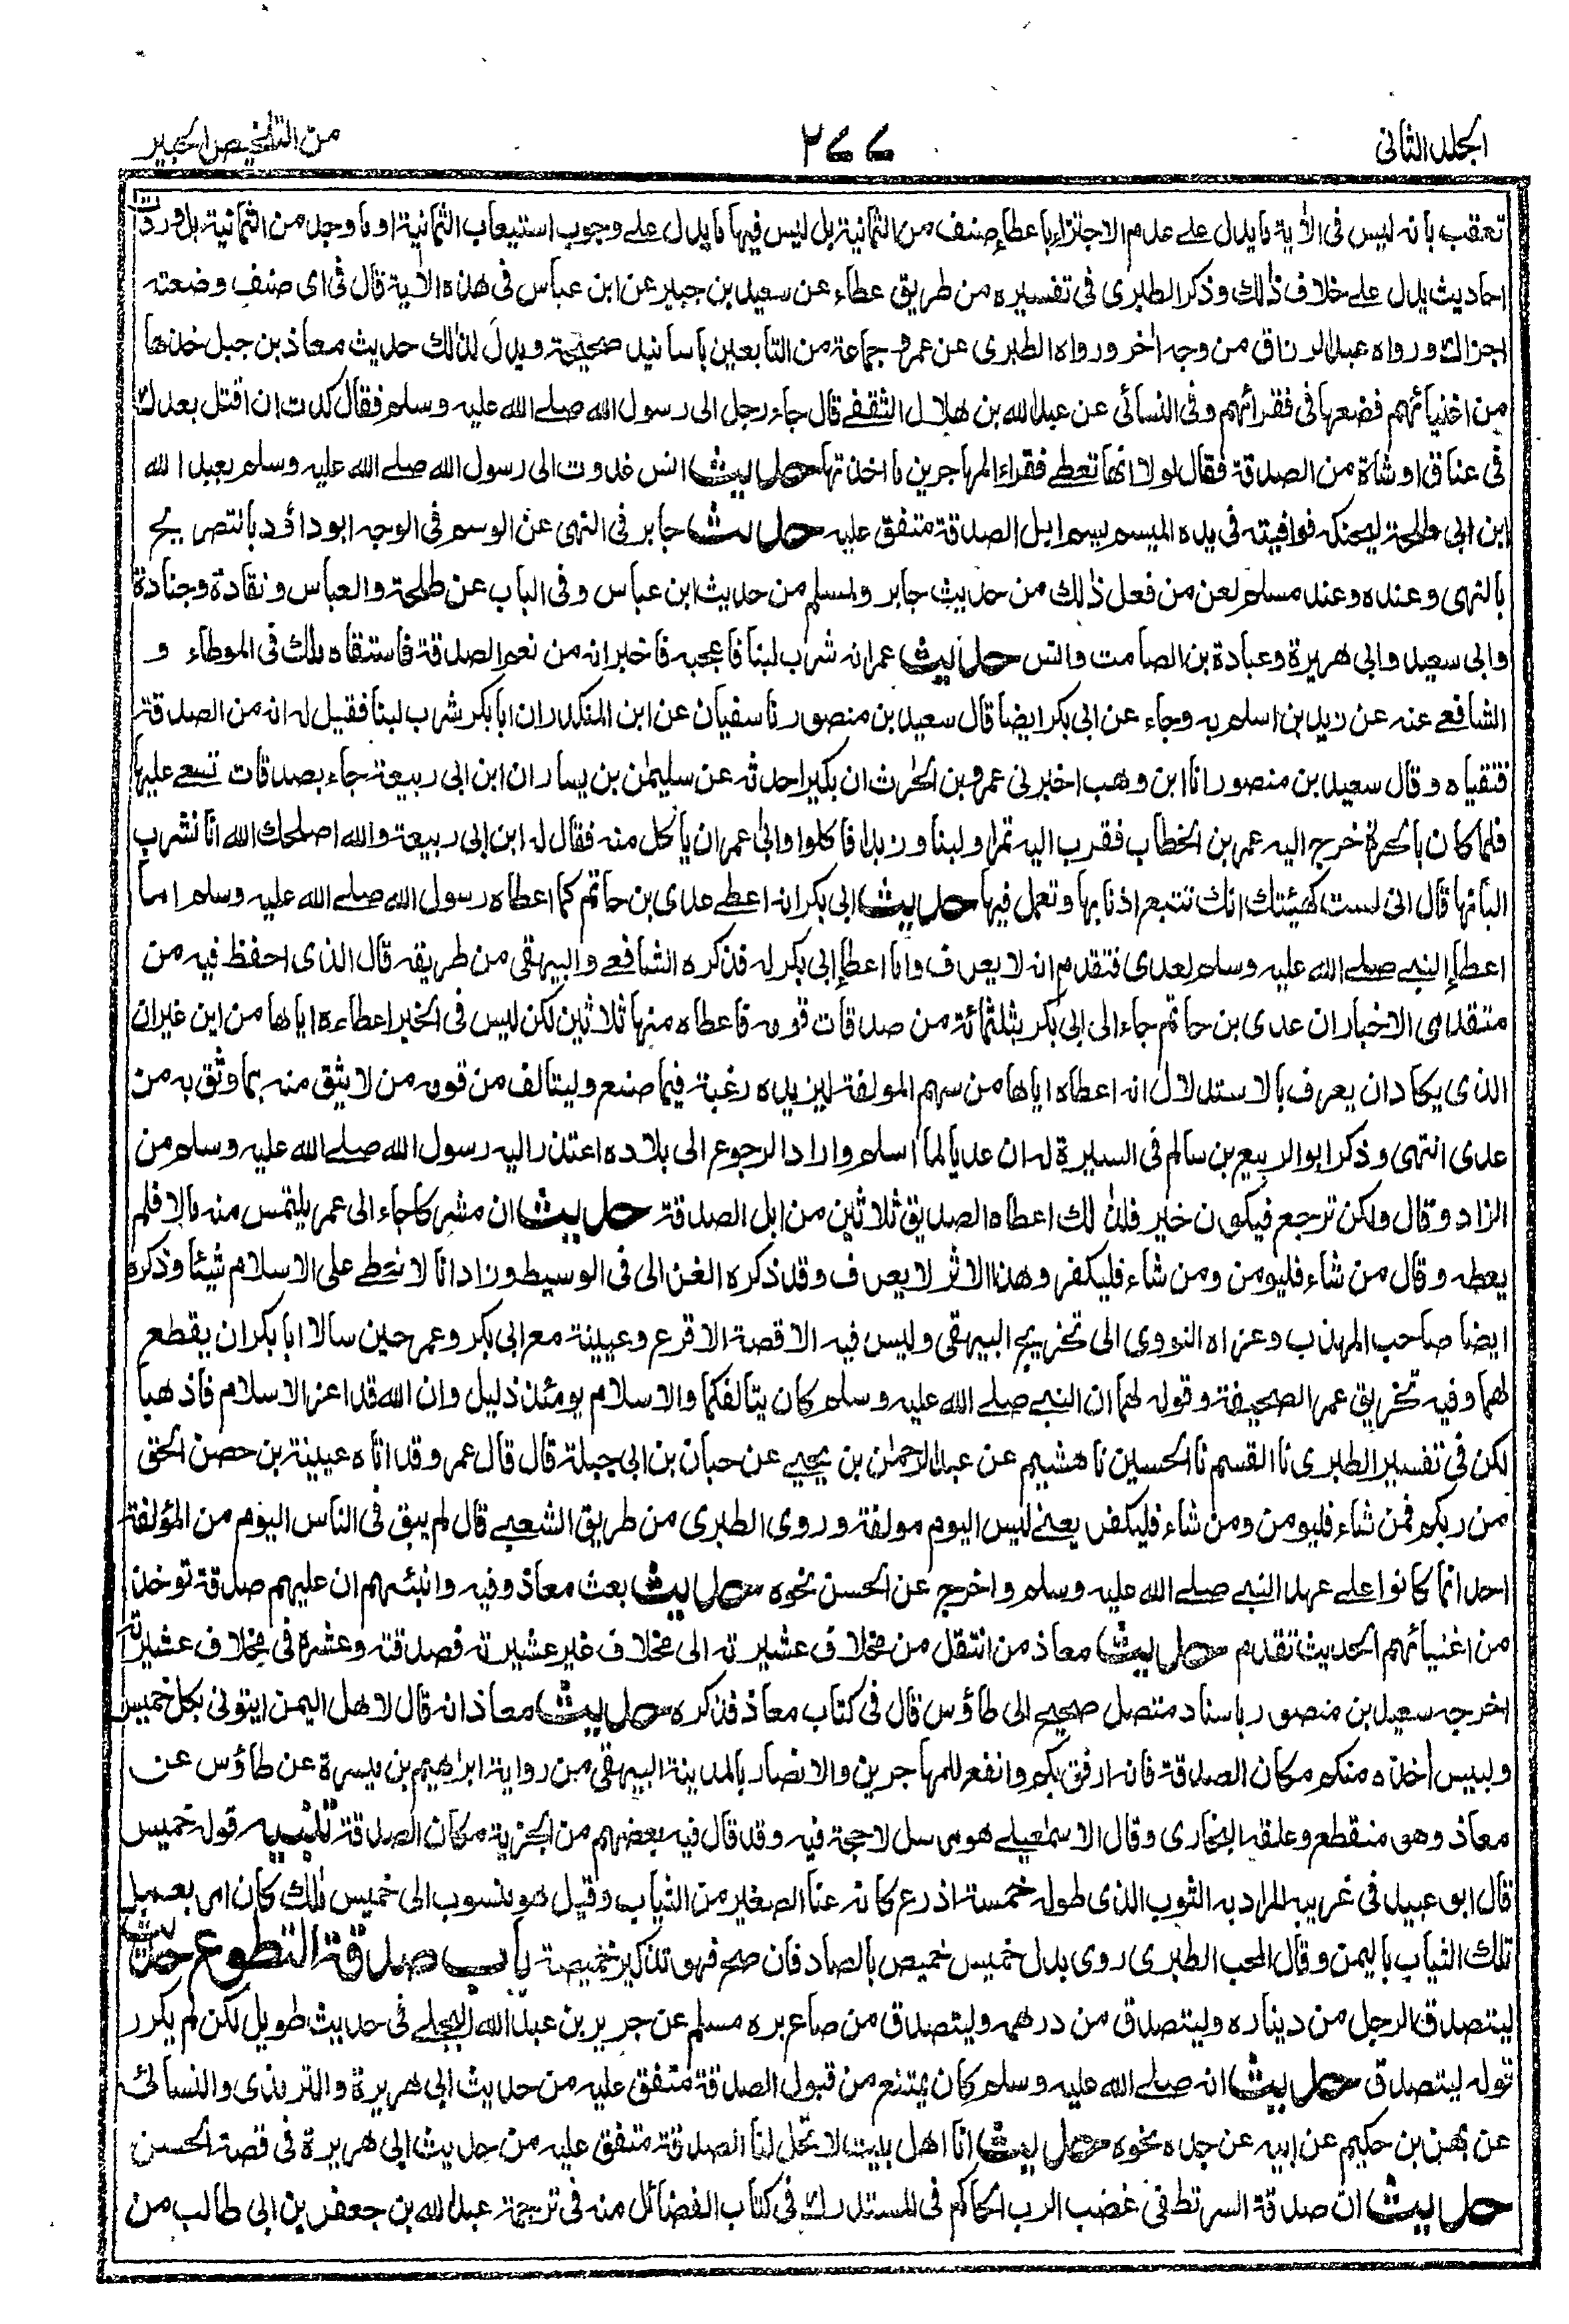 المجلد الثانى
٢٧٧
من التلخيص الحبير
تعقب بانه ليس فى الاٰية ما يدل على عدم الاجتزاء باعطاء صنف من الثمانية بل ليس فيها ما يدل على وجوب استيعاب الثمانية او ما وجد من الثمانية بل وردت
احاديث يدل على خلاف ذٰلك وذكر الطبرى فى تفسيره من طريق عطاء عن سعيد بن جبير عن ابن عباس فى هذه الاٰية قال فى اى صنف وضعته
اجزاك ورواه عبد الرزاق من وجه اٰخر ورواه الطبرى عن عمر وجماعة من التابعين باسانيد صحيحة ويدل لذٰلك حديث معاذ بن جبل خذها
من اغنيائهم فضعها فى فقرائهم وفى النسائى عن عبد الله بن هلال الثقفے قال جاء رجل الى رسول الله صلے الله عليه وسلم فقال كدت ان اقتل بعدك
فى عناق او شاة من الصدقة فقال لولا انها تعطے فقراء المهاجرين ما اخذتها حديث انس غدوت الى رسول الله صلے الله عليه وسلم بعبد الله
ابن ابى طلحة ليحنكه فوافيته فى يده الميسم يسم ابل الصدقة متفق عليه حديث جابر فى النهى عن الوسم فى الوجه ابو داؤد بالتصريح
بالنهى وعنده وعند مسلم لعن من فعل ذٰلك من حديث جابر ولمسلم من حديث ابن عباس وفى الباب عن طلحة والعباس ونقادة وجنادة
وابى سعيد وابى هريرة وعبادة بن الصامت وانس حديث عمر انه شرب لبنا فاعجبه فاخبر انه من نعم الصدقة فاستقاه مٰلك فى الموطاء و
الشافعے عنه عن زيد بن اسلم به وجاء عن ابى بكر ايضا قال سعيد بن منصور نا سفيان عن ابن المنكدر ان ابا بكر شرب لبنا فقيل له انه من الصدقة
فتقياه وقال سعيد بن منصور انا ابن وهب اخبرنى عمرو بن الحٰرث ان بكيرا حدثه عن سليمٰن بن يسار ان ابن ابى ربيعة جاء بصدقات تسعے عليها
فلما كان بالحرة خرج اليه عمر بن الخطاب فقرب اليه تمرا ولبنا وزبدا فاكلوا وابى عمر ان ياكل منه فقال له ابن ابى ربيعة والله اصلحك الله انا نشرب
البانها قال انى لست كهيئتك انك تتبع اذنابها وتعمل فيها حديث ابى بكر انه اعطے عدى بن حاتم كما اعطاه رسول الله صلے الله عليه وسلم اما
اعطاء النبے صلے الله عليه وسلم لعدى فتقدم انه لا يعرف واما اعطاء ابى بكر له فذكره الشافعے والبيهقى من طريقه قال الذى احفظ فيه من
متقدمى الاخبار ان عدى بن حاتم جاء الى ابى بكر بثلثمائة من صدقات قومه فاعطاه منها ثلاثين لكن ليس فى الخبر اعطاءه اياها من اين غير ان
الذى يكاد ان يعرف بالاستدلال انه اعطاه اياها من سهم المولفة ليزيده رغبة فيما صنع وليتالف من قومه من لا يثق منه بما وثق به من
عدى انتهى وذكر ابو الربيع بن سالم فى السيرة له ان عديا لما اسلم واراد الرجوع الى بلاده اعتذر اليه رسول الله صلے الله عليه وسلم من
الزاد وقال ولكن ترجع فيكون خير فلذٰلك اعطاه الصديق ثلاثين من ابل الصدقة حديث ان مشركا جاء الى عمر يلتمس منه مالا فلم
يعطه وقال من شاء فليومن ومن شاء فليكفر وهذا الاثر لا يعرف وقد ذكره الغزالى فى الوسيط وزاد انا لا نعطے على الاسلام شيئا وذكره
ايضا صاحب المهذب وعزاه النووى الى تخريج البيهقى وليس فيه الا قصة الاقرع وعيينة مع ابى بكر وعمر حين سالا ابا بكر ان يقطع
لهما وفيه تخريق عمر الصحيفة وقوله لهما ان النبے صلے الله عليه وسلم كان يتالفكما والاسلام يومئذ ذليل وان الله قد اعز الاسلام فاذهبا
لكن فى تفسير الطبرى نا القسم نا الحسين نا هشيم عن عبد الرحمٰن بن يحيے عن حبان بن ابى جبلة قال قال عمر وقد اتاه عيينة بن حصن الحق
من ربكم فمن شاء فليومن ومن شاء فليكفر يعنے ليس اليوم مولفة وروى الطبرى من طريق الشعبے قال لم يبق فى الناس اليوم من المؤلفة
احد انما كانوا على عهد النبے صلے الله عليه وسلم واخرج عن الحسن نحوه حديث بعث معاذ وفيه وانبئهم ان عليهم صدقة توخذ
من اغنيائهم الحديث تقدم حديث معاذ من انتقل من مخلاف عشيرته الى مخلاف غير عشيرته فصدقته وعشره فى مخلاف عشيرته
اخرجه سعيد بن منصور باسناد متصل صحيح الى طاؤس قال فى كتاب معاذ فذكره حديث معاذ انه قال لاهل اليمن ايتونى بكل خميس
ولبيس اٰخذه منكم مكان الصدقة فانه ارفق بكم وانفع للمهاجرين والانصار بالمدينة البيهقى من رواية ابرٰهيم بن ميسرة عن طاؤس عن
معاذ وهو منقطع وعلقه البخارى وقال الاسمٰعيلے هو مرسل لا حجة فيه وقد قال فيه بعضهم من الجزية مكان الصدقة تنبيه قوله خميس
قال ابو عبيد فى غريبه المراد به الثوب الذى طوله خمسة اذرع كانه عنا الصغير من الثياب وقيل هو منسوب الى خميس ملك كان امر بعمل
تلك الثياب باليمن وقال المحب الطبرى روى بدل خميس خميص بالصاد فان صح فهو تذكير خميصة باب صدقة التطوع حديث
ليتصدق الرجل من ديناره وليتصدق من درهمه وليتصدق من صاع بره مسلم عن جرير بن عبد الله البجلے فى حديث طويل لكن لم يكرر
قوله ليتصدق حديث انه صلے الله عليه وسلم كان يمتنع من قبول الصدقة متفق عليه من حديث ابى هريرة والترمذى والنسائى
عن بهز بن حكيم عن ابيه عن جده نحوه حديث انا اهل بيت لا تحل لنا الصدقة متفق عليه من حديث ابى هريرة فى قصة الحسن
حديث ان صدقة السر تطفى غضب الرب الحاكم فى المستدرك فى كتاب الفضائل منه فى ترجمة عبد الله بن جعفر بن ابى طالب من